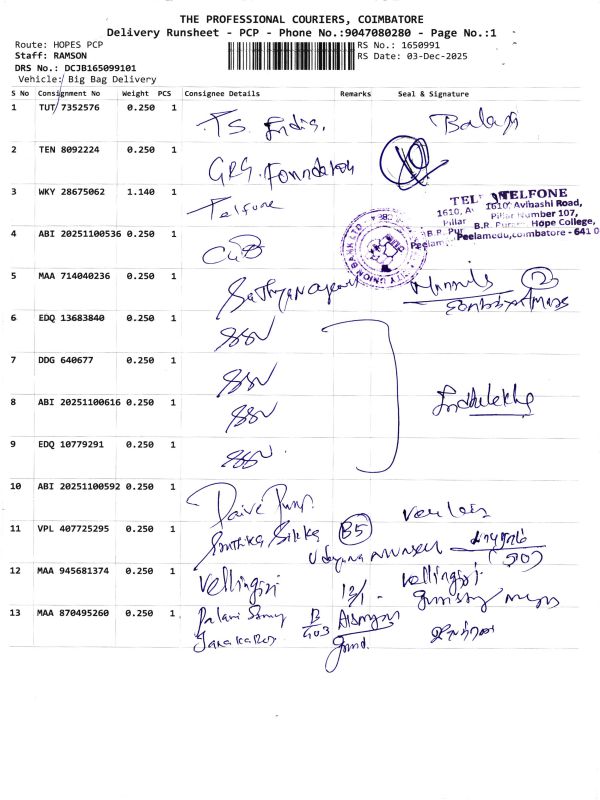 THE PROFESSIONAL COURIERS, COIMBATORE
Delivery Runsheet - PCP - Phone No.:9047080280 - Page No.:1
Route: HOPES PCP
RS No.: 1650991
Staff: RAMSON
RS Date: 03-Dec-2025
DRS No.: DCJB165099101
Vehicle: Big Bag Delivery
S No Consignment No Weight PCS Consignee Details Remarks Seal & Signature
1 TUT 7352576 0.250 1 T.S. India. Balaji
2 TEN 8092224 0.250 1 GRG. Foundation
3 WKY 28675062 1.140 1 Telfone
TELEFONE
1610, Avinashi Road,
Pillar Number 107,
B.R. Puram, Hope College,
Peelamedu, coimbatore - 641 0
4 ABI 20251100536 0.250 1 CUB
UNION BANK LTD
5 MAA 714040236 0.250 1 Sathyanarayan
6 EDQ 13683840 0.250 1 SSV
7 DDG 640677 0.250 1 SSV
8 ABI 20251100616 0.250 1 SSV Indhulekha
9 EDQ 10779291 0.250 1 SSV
10 ABI 20251100592 0.250 1 Daive Pump.
11 VPL 407725295 0.250 1 Smithika Silks B5
12 MAA 945681374 0.250 1 Vellingiri 12/1 - Vellingiri
13 MAA 870495260 0.250 1 Palani Samy B 603